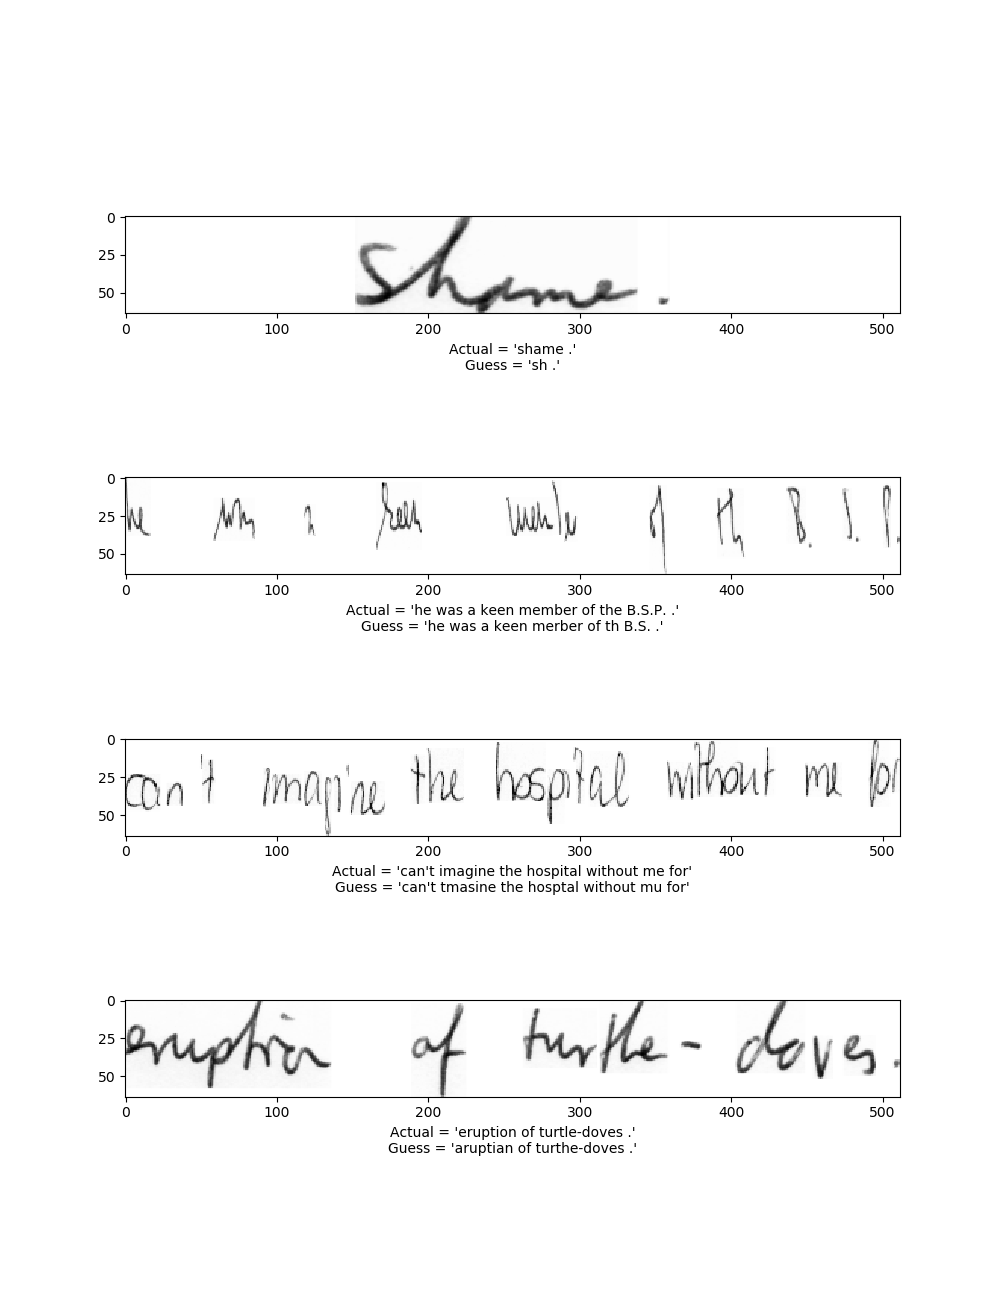 0
25
50
shame .
0 100 200 300 400 500
Actual = 'shame .'
Guess = 'sh .'
0
25
50
he was a keen member of the B.S.P.
0 100 200 300 400 500
Actual = 'he was a keen member of the B.S.P. .'
Guess = 'he was a keen merber of th B.S. .'
0
25
50
can't imagine the hospital without me for
0 100 200 300 400 500
Actual = 'can't imagine the hospital without me for'
Guess = 'can't tmasine the hosptal without mu for'
0
25
50
eruption of turtle-doves.
0 100 200 300 400 500
Actual = 'eruption of turtle-doves .'
Guess = 'aruptian of turthe-doves .'